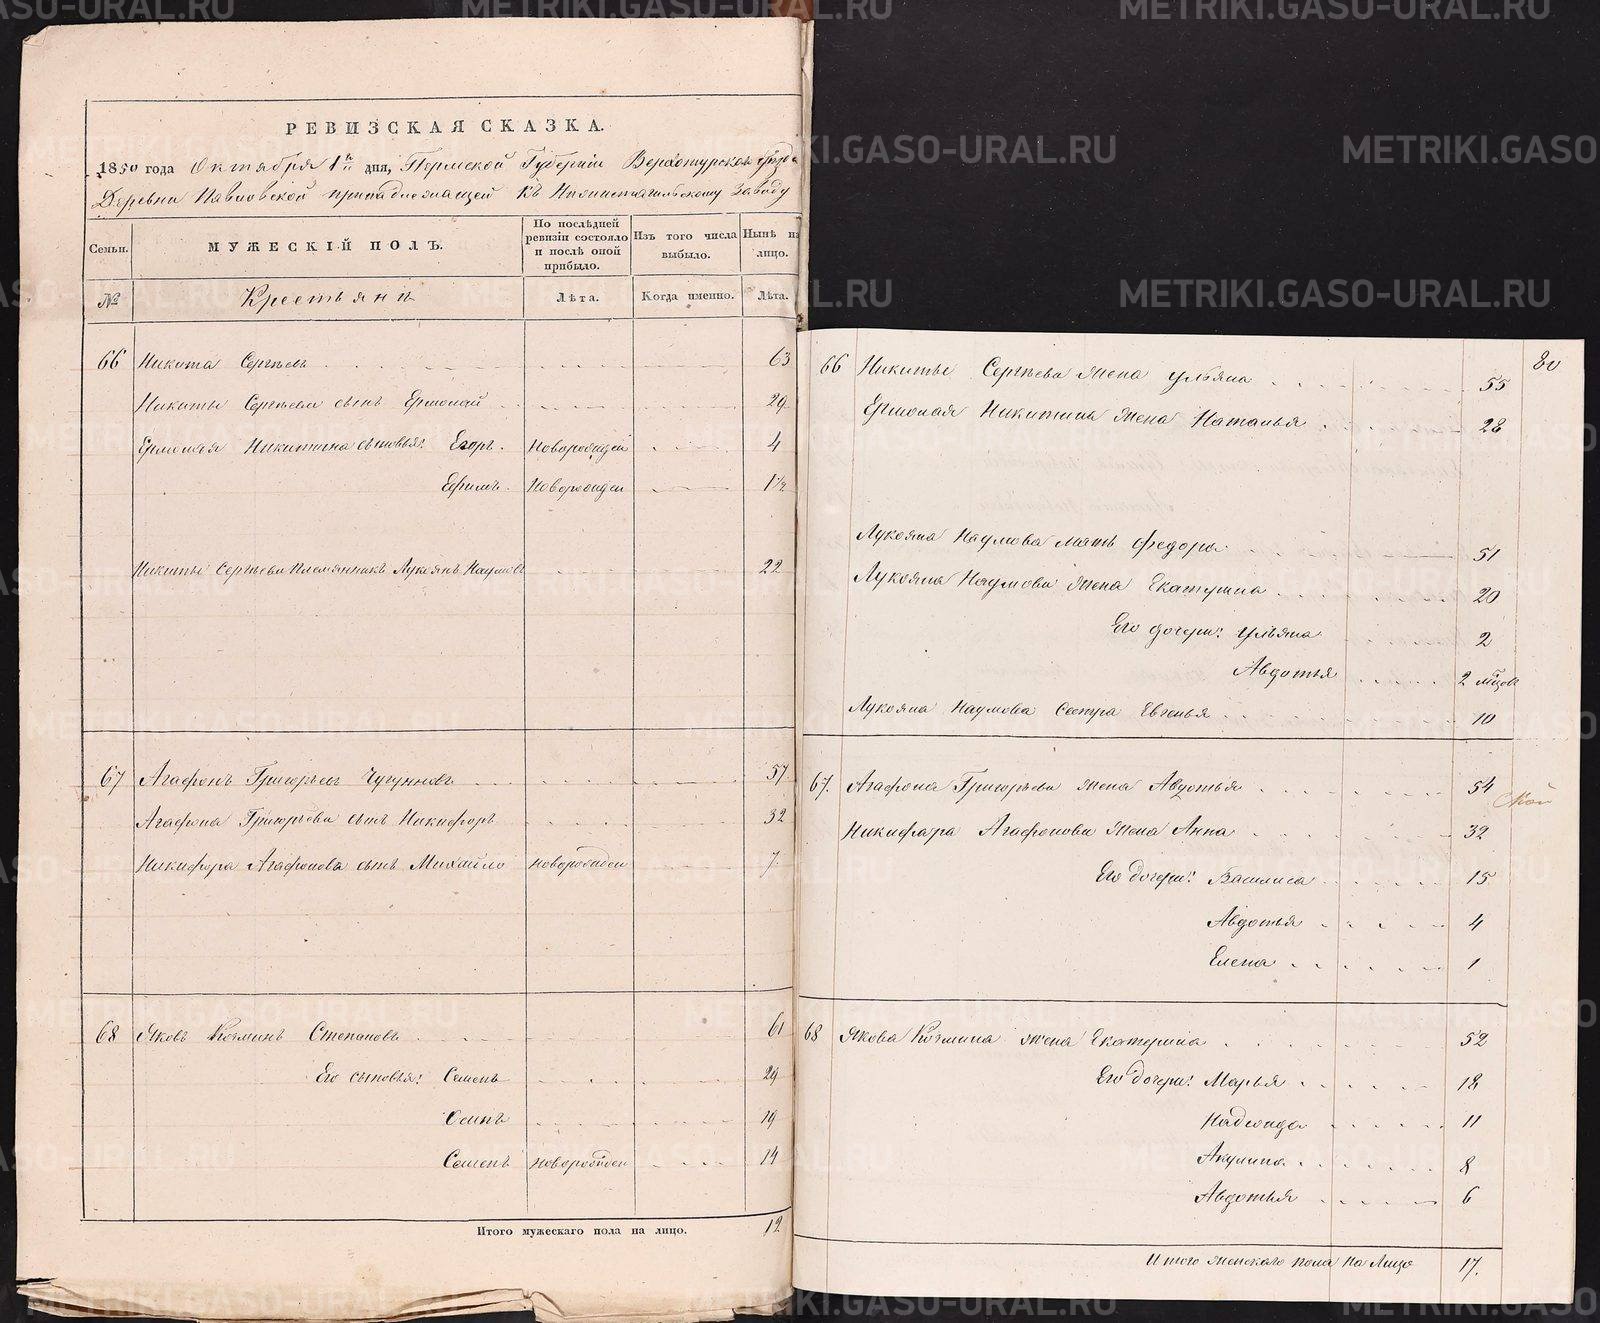 РЕВИЗСКАЯ СКАЗКА.
1850 года Октября 1го дня, Пермской Губернiи Верхотурскаго уѣзда
Деревни принадлежащей къ Нижнетагильскому Заводу
Семьи. МУЖЕСКIЙ ПОЛЪ. По послѣдней ревизiи состояло и послѣ оной прибыло. Изъ того числа выбыло. Нынѣ на лицо.
№ Крестьяне Лѣта. Когда именно. Лѣта.
66 Никита Сергѣевъ 63
Никиты Сергѣева сынъ Ермолай 29
Ермолая Никитина сыновья: Егоръ. Новорожден 4
Ефимъ. Новорожден 1½
Никиты Сергѣева Племянникъ Лукоянъ Наумовъ 22
67 Агафонъ Григорьевъ Чугуновъ 57
Агафона Григорьева сынъ Никифоръ 32
Никифора Агафонова сынъ Михайло новорожден 7
68 Яковъ Козминъ Степановъ 61
Его сыновья: Семенъ 29
Осипъ 19
Семенъ новорожден 14
Итого мужескаго пола на лицо. 12
80
66 Никиты Сергѣева жена Ульяна 55
Ермолая Никитина жена Наталья 28
Лукояна Наумова мать Федора 51
Лукояна Наумова жена Екатерина 20
Его дочери: Ульяна 2
Авдотья 2 мѣсяцъ
Лукояна Наумова Сестра Евгенья 10
67. Агафона Григорьева жена Авдотья 54
Никифора Агафонова жена Анна 32
Его дочери: Василиса 15
Авдотья 4
Елена 1
68 Якова Козмина жена Екатерина 52
Его дочери: Марья 18
Надежда 11
Акулина 8
Авдотья 6
Итого женскаго пола на Лицо 17.
METRIKI.GASO-URAL.RU